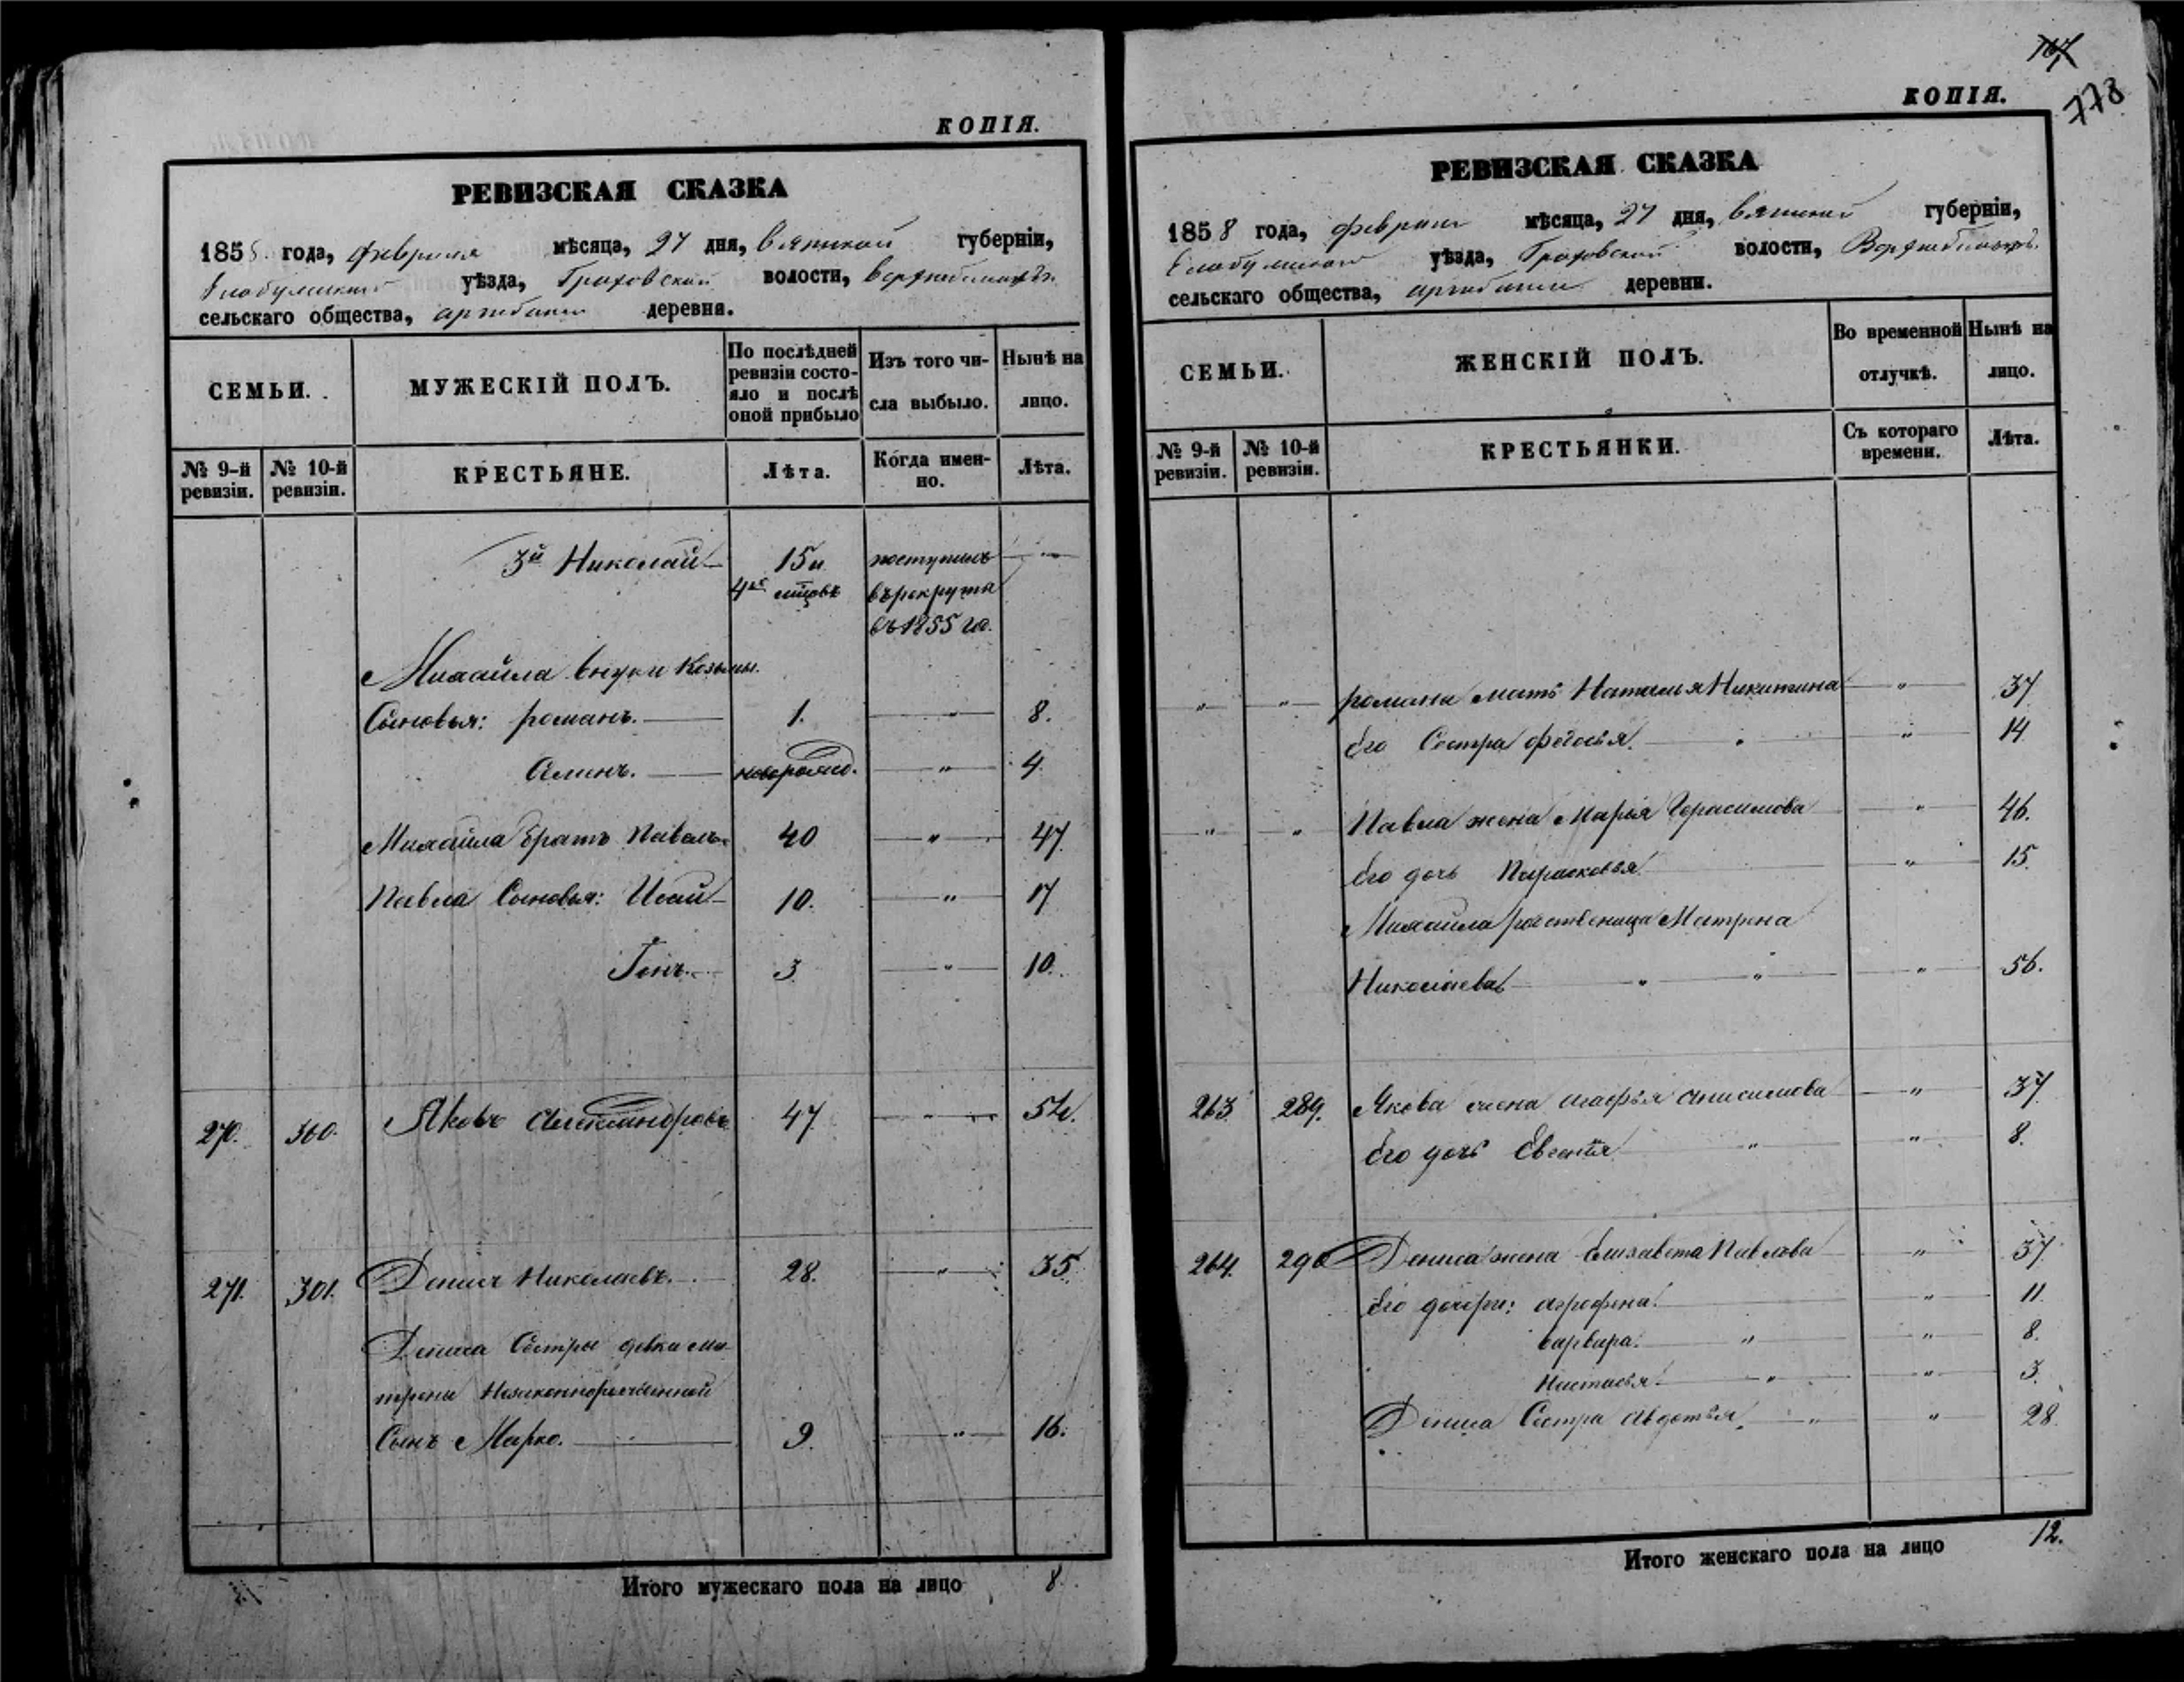 КОПІЯ.
РЕВИЗСКАЯ СКАЗКА
1858 года, февраля мѣсяца, 27 дня, Вятской губерніи,
Елабужскаго уѣзда, Граховской волости,
сельскаго общества, деревни.
СЕМЬИ.
МУЖЕСКІЙ ПОЛЪ.
По послѣдней ревизіи состо-
яло и послѣ оной прибыло
Изъ того чи-
сла выбыло.
Нынѣ на
лицо.
№ 9-й ревизіи.
№ 10-й ревизіи.
КРЕСТЬЯНЕ.
Лѣта.
Когда имен-
но.
Лѣта.
3й Николай 15 и поступилъ
4хъ мцовъ въ рекруты
въ 1855 го.
Михайла внуки Козьмы
Сыновья: романъ. 1. " 8.
Семенъ. новорожд. " 4.
Михайла братъ Павелъ 40 " 47.
Павла Сыновья: Исай 10. " 17
3 " 10.
270. 300. Яковъ Александровъ 47 " 54.
271. 301. Денисъ Николаевъ. 28. " 35.
Дениса Сестры девки Ма-
трены Незаконнорожденной
Сынъ Марко. 9. " 16.
Итого мужескаго пола на лицо 8.
767
778
КОПІЯ.
РЕВИЗСКАЯ СКАЗКА
1858 года, февраля мѣсяца, 27 дня, Вятской губерніи,
Елабужскаго уѣзда, Граховской волости,
сельскаго общества, деревни.
СЕМЬИ.
ЖЕНСКІЙ ПОЛЪ.
Во временной
отлучкѣ.
Нынѣ на
лицо.
№ 9-й ревизіи.
№ 10-й ревизіи.
КРЕСТЬЯНКИ.
Съ котораго
времени.
Лѣта.
" " романа мать Наталья Никитина " 37
Его Сестра " 14
" " Павла жена Марья Герасимова " 46.
Его дочь Парасковья " 15.
Михайла Матрена
Николаева " " " 56.
263. 289. Якова жена Анисимова " 37.
Его дочь Евгенія " " 8.
264. 290 Дениса жена Елизавета Павлова " 37.
Его дочери: агрофена. " 11.
варвара. " " 8.
Настасья. " " 3.
Дениса Сестра авдотья. " " 28.
Итого женскаго пола на лицо 12.